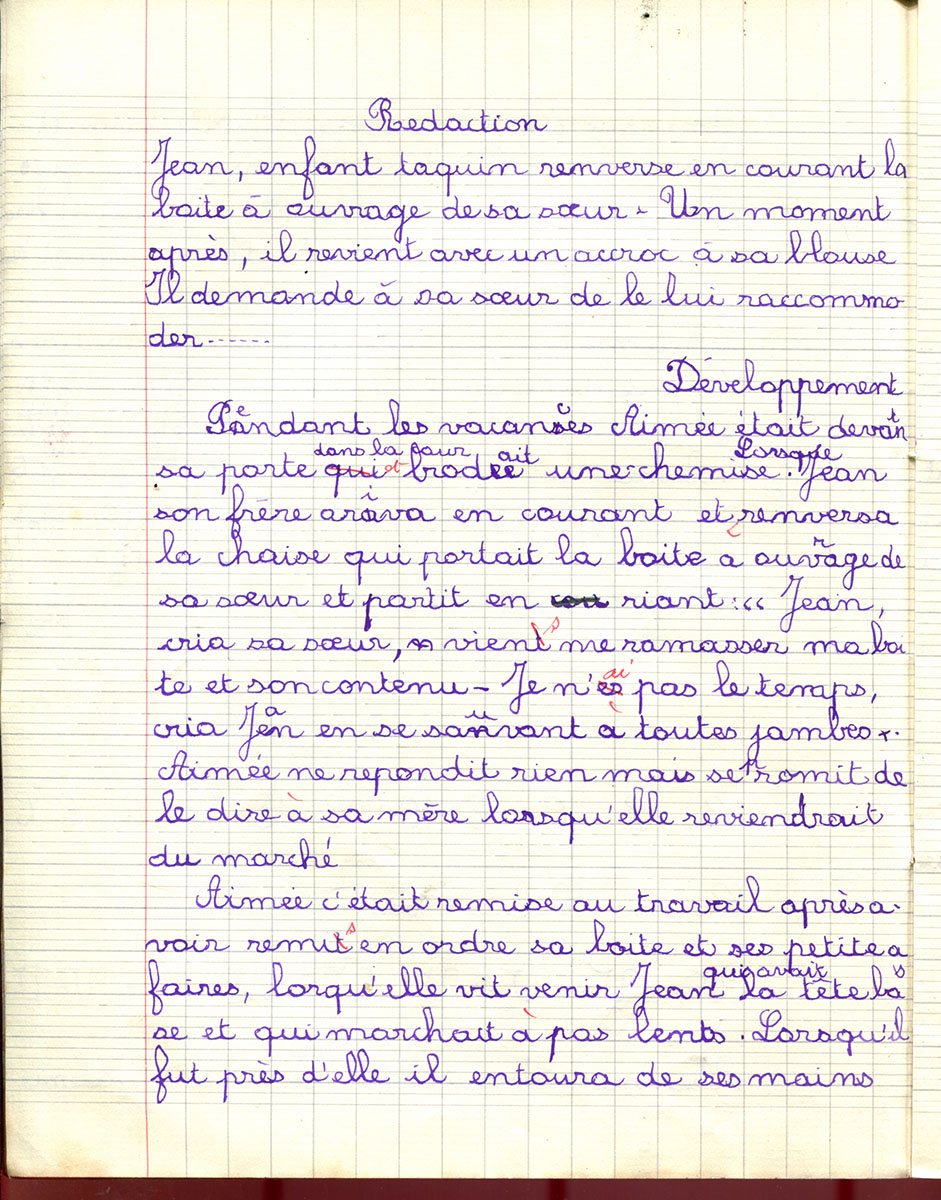 Redaction
Jean, enfant taquin renverse en courant la
boite à ouvrage de sa sœur - Un moment
après, il revient avec un accroc à sa blouse
Il demande à sa sœur de le lui raccommo
der ......
Développement
Pendant les vacances Aimée était devant
dans la cour ait Lorsque
sa porte qui et brodée une chemise. Jean
son frère arriva en courant et renversa
la chaise qui portait la boite à ouvrage de
sa sœur et partit en riant : « Jean,
cria sa sœur, viens me ramasser ma boi
te et son contenu - Je n'ai pas le temps,
cria Jean en se sauvant à toutes jambes.
Aimée ne repondit rien mais se promit de
le dire à sa mère lorsqu'elle reviendrait
du marché
Aimée c'était remise au travail après a-
voir remis en ordre sa boite et ses petite a
qui avait s
faires, lorqu'elle vit venir Jean la tête ba
se et qui marchait à pas lents. Lorsqu'il
fut près d'elle il entoura de ses mains